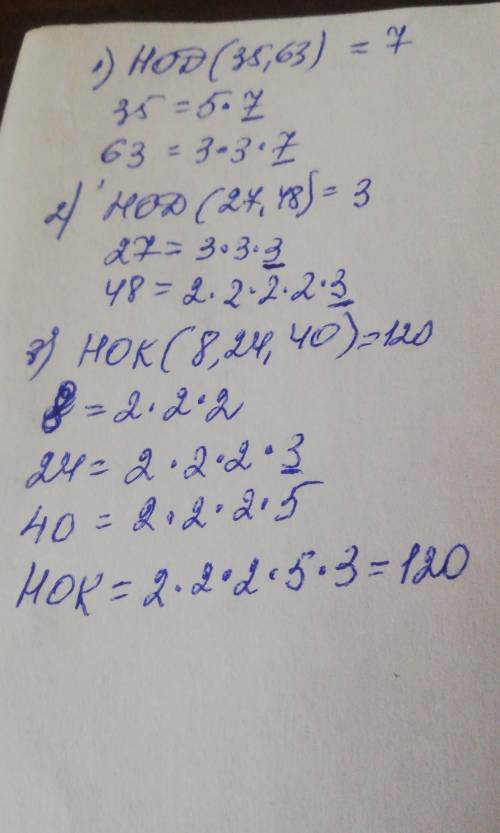 1) НОД (35,63) = 7
35 = 5·7
63 = 3·3·7
2) НОД (27,48) = 3
27 = 3·3·3
48 = 2·2·2·2·3
3) НОК (8,24,40) = 120
8 = 2·2·2
24 = 2·2·2·3
40 = 2·2·2·5
НОК = 2·2·2·5·3 = 120